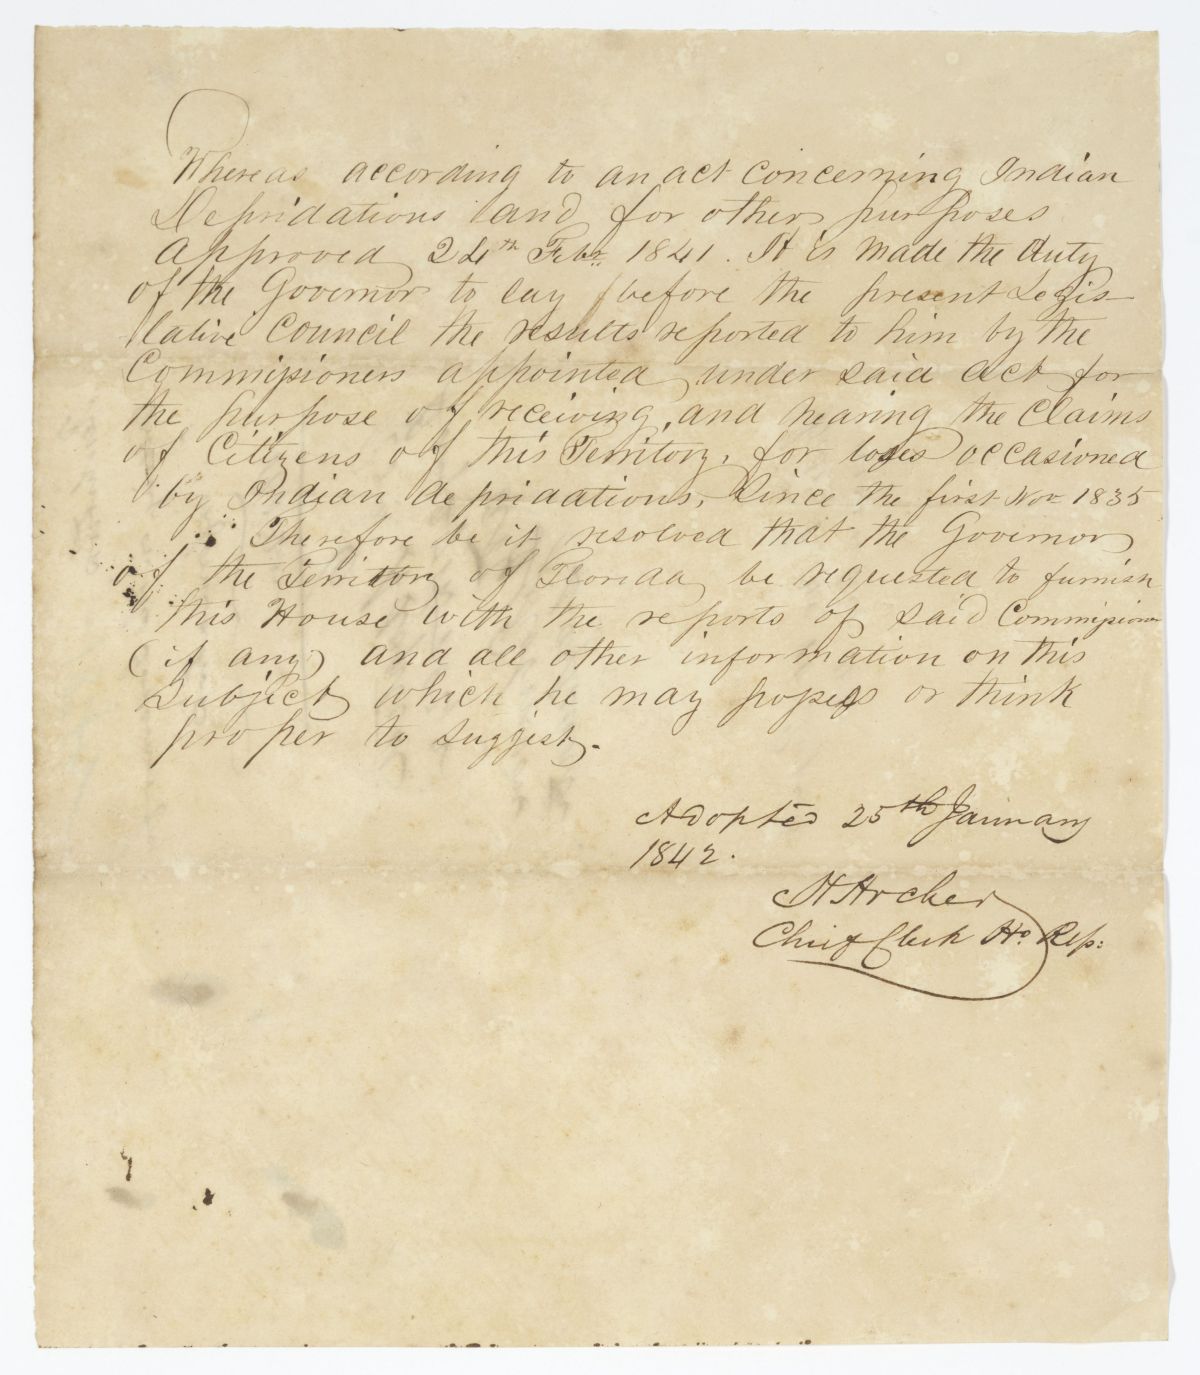 Whereas according to an act concerning Indian
Depridations and for other purposes
Approved 24th Febr. 1841. It is made the duty
of the Governor to lay before the present Legis-
lative Council the results reported to him by the
Commissioners appointed under said act for
the purpose of receiving, and hearing the Claims
of Citizens of this Territory, for losses occasioned
by Indian depridations, Since the first Nov 1835
Therefore be it resolved that the Governor
of the Territory of Florida be requested to furnish
this House with the reports of said Commissioners
(if any) and all other information on this
Subject which he may possess or think
proper to suggest.
Adopted 25th January
1842.
H Archer
Chief Clerk Ho. Rep: